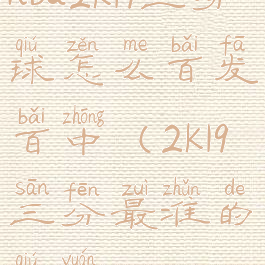 qiú zěn me bǎi fā
球怎么百发
bǎi zhōng
百中（2K19
sān fēn zuì zhǔn de
三分最准的
qiú yuán